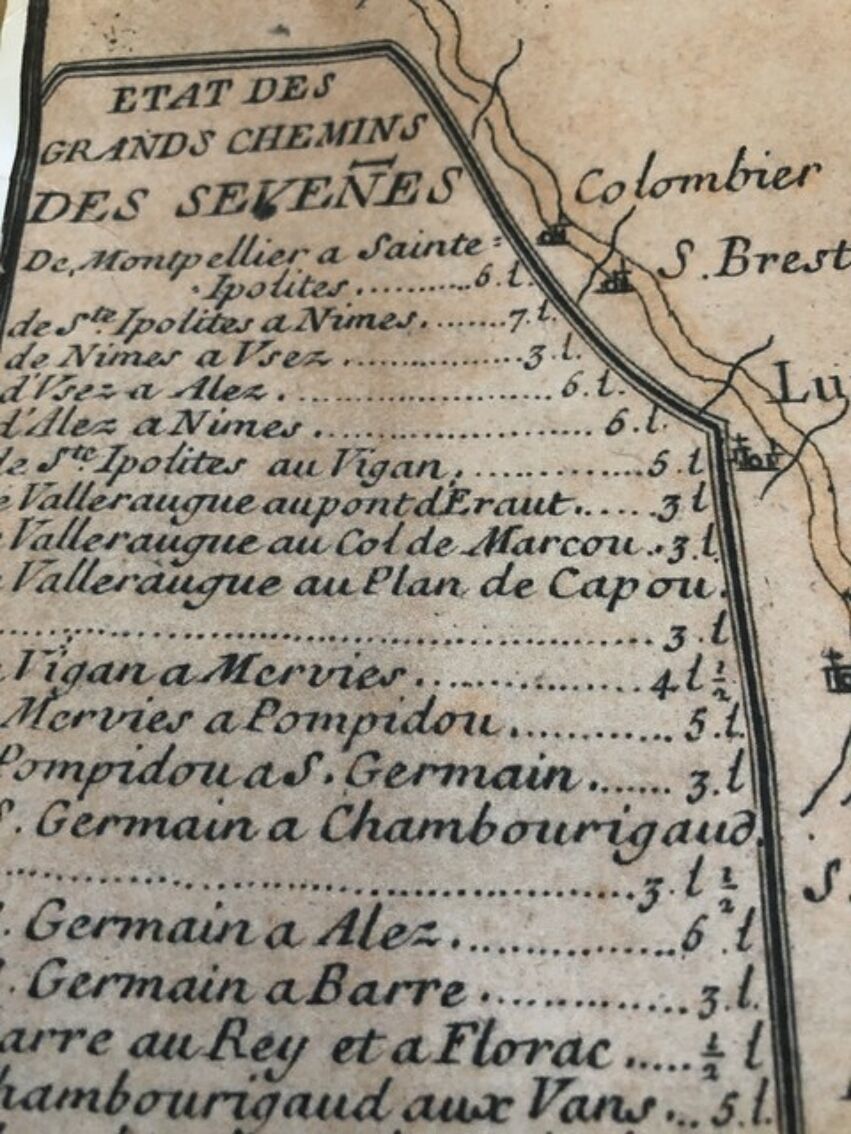 ETAT DES
GRANDS CHEMINS
DES SEVEÑES
De Montpellier a Sainte=
Ipolites..........6.l.
de Ste. Ipolites a Nimes........7.l.
de Nimes a Vsez..................3.l.
d'Vsez a Alez.........................6.l.
d'Alez a Nimes..........................6.l.
de Ste. Ipolites au Vigan...............5.l
Valleraugue au pont d'Eraut......3 l
Valleraugue au Col de Marcou..3.l.
Valleraugue au Plan de Capou.
..........................................3.l
Vigan a Mervies....................4 l 1/2
Mervies a Pompidou............5.l.
Pompidou a S. Germain.......3.l
S. Germain a Chambourigaud.
..........................................3.l 1/2
. Germain a Alez..................6 l
. Germain a Barre...............3.l.
arre au Rey et a Florac.....1/2 l
hambourigaud aux Vans...5.l.
Colombier
S. Brest
Lu
S.